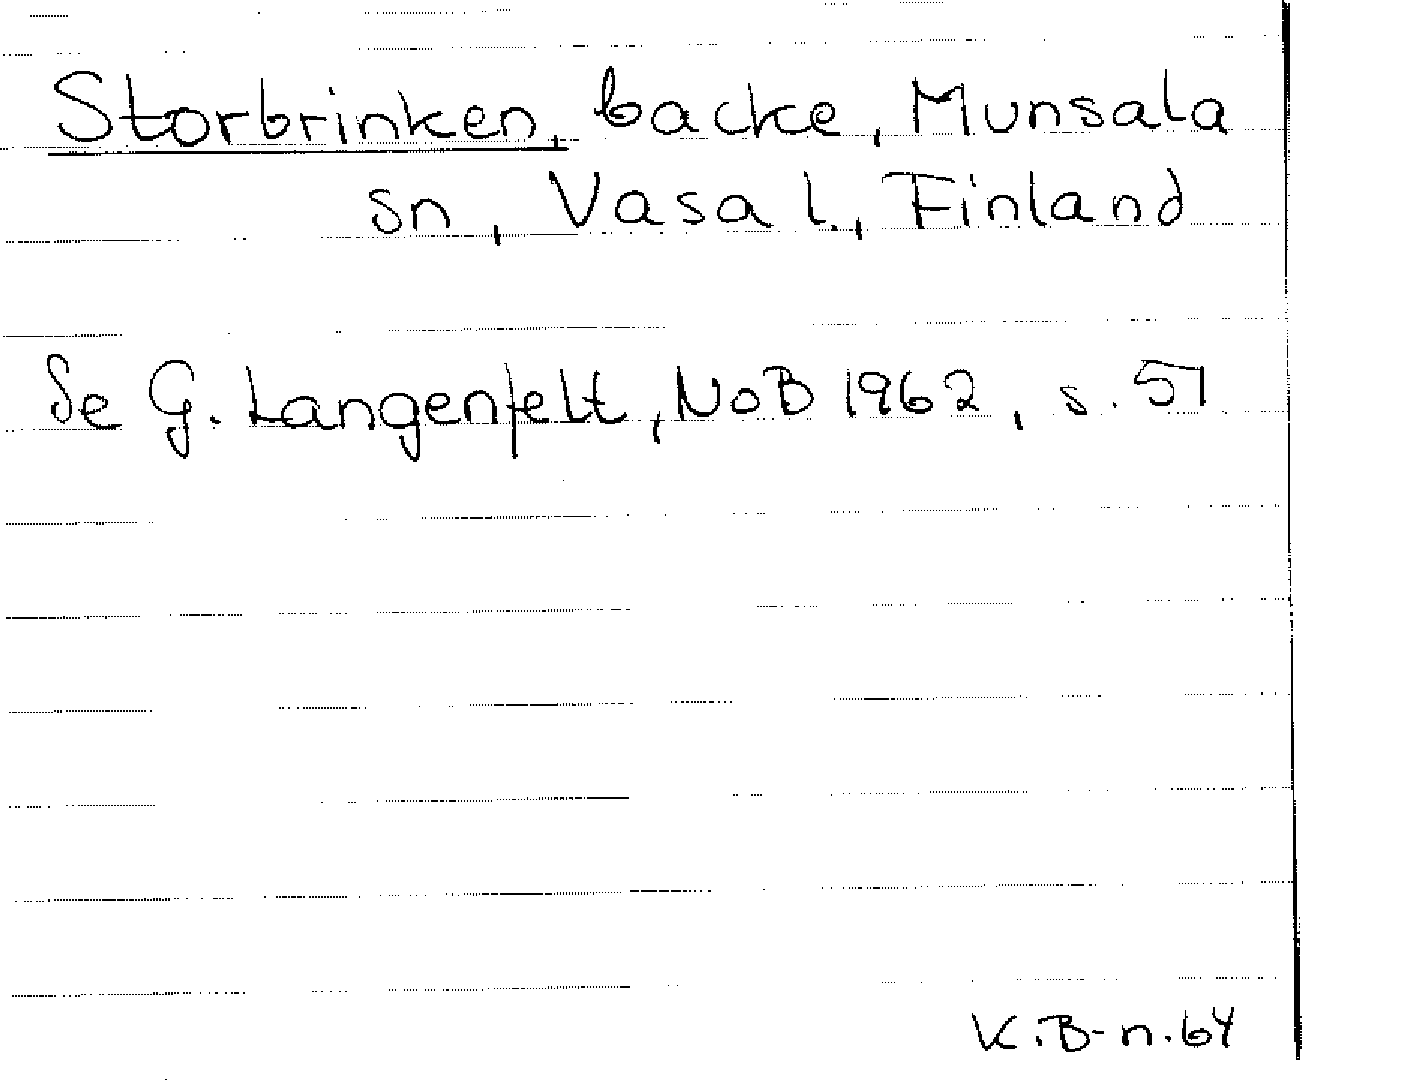 Storbrinken, backe, Munsala
sn, Vasa l., Finland
Se G. Langenfelt, NoB 1962, s. 51
K.B-n.64